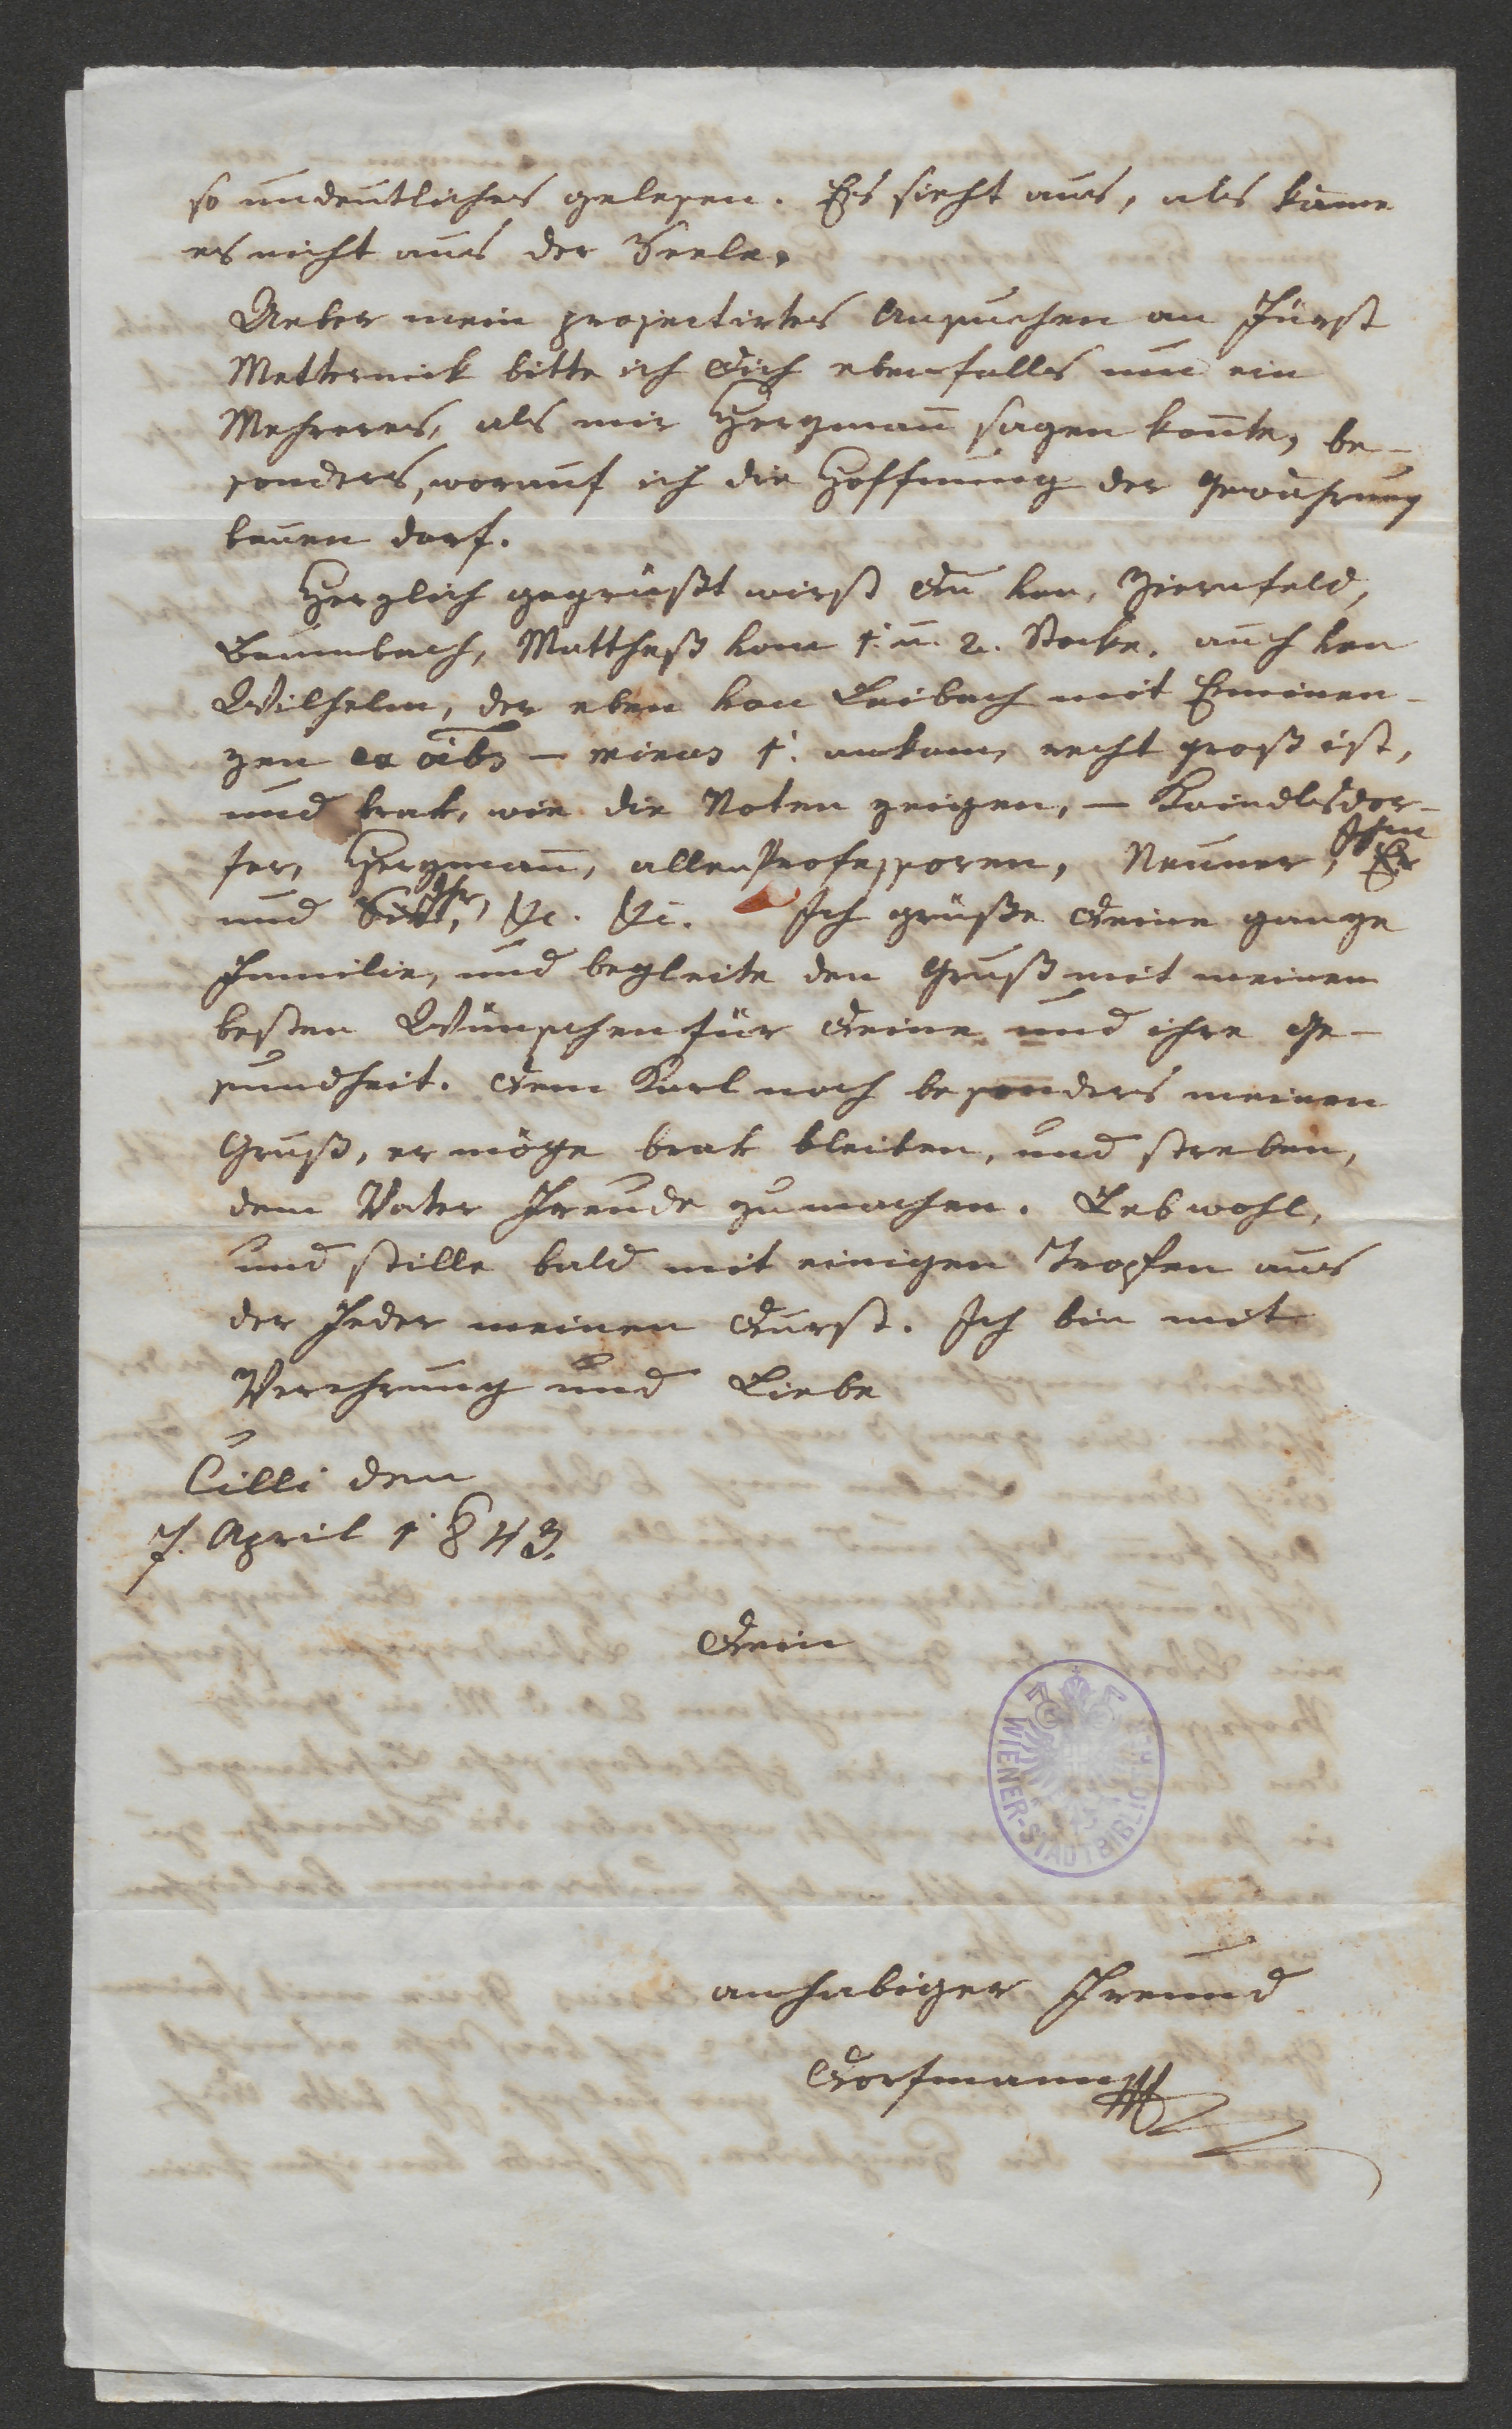 so undeutliches gelesen. Es sieht aus, als käme
es nicht aus der Seele.
Ueber mein projectirtes Ansuchen an Fürst
Metternich bitte ich Dich ebenfalls um ein
Mehreres, als mir Hergmann̄ sagen kon̄te, be-
sonders, worauf ich die Hoffnung der Gewährung
bauen darf.
Herzlich gegrüßt wirst Du von, Ziernfeld,
Baumbach, Matthaß vom 1. u. 2. Stocke. auch von
Wilhelm, der eben von Laibach mit Eminen-
zen ex oib9 – minus 1. ankam, recht groß ist,
und brav, wie die Noten zeigen, – Kaindlsdor-
fer, Hergman̄, allen Professoren, Neuner, Ihm
und Ihr, &c. &c. Ich grüße Deine ganze
Familie, und begleite den Gruß mit meinen
besten Wünschen für Deine und ihre Ge-
sundheit. Dem Karl noch besonders meinen
Gruß, er möge brav bleiben, und streben,
dem Vater Freude zu machen. Leb wohl,
und stille bald mit einigen Tropfen aus
der Feder meinen Durst. Ich bin mit
Verehrung und Liebe
Cilli den
7. April 1843.
Dein
WIENER-STADTBIBLIOTHEK
anhabiger Freund
Dorfmann